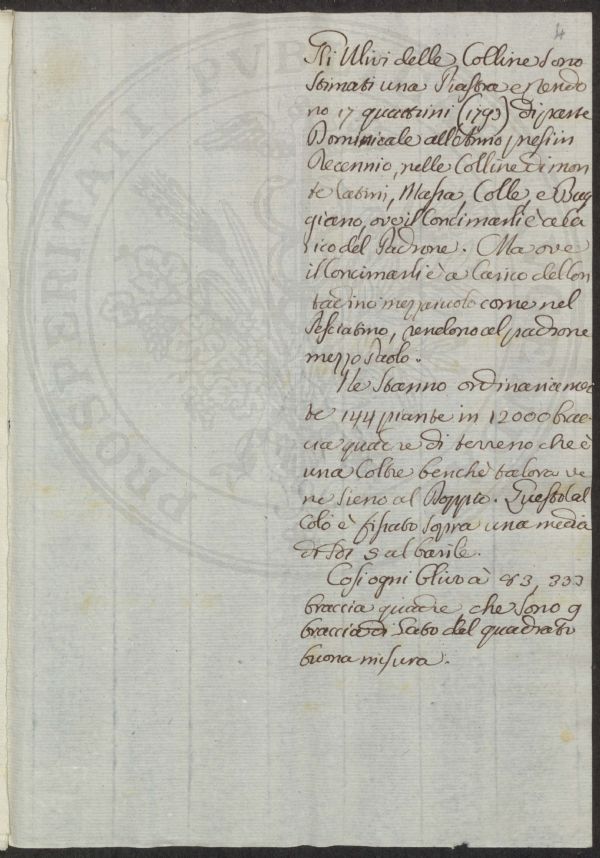 4
Gli Ulivi delle Colline sono
stimati una Piastra e rendo
no 17 quattrini (1793) di parte
Dominicale all'Anno, presi in
Decennio, nelle Colline di mon
te Catini, Massa, Colle, e Bug
giano, ove il Concimarli è a ca
rico del Padrone. Ma ove
il Concimarli è a Carico del Con
tadino mezzaiolo come nel
Pesciatino, rendono al padrone
mezzo Paolo.
Ne stanno ordinariamen
te 144 piante in 12000 brac
cia quadre di terreno che è
una Coltre benchè talora ve
ne sieno al Doppio. Questo Cal
colo è fissato sopra una media
di al barile.
Così ogni Ulivo à 83,333
braccia quadre, che sono 9
braccia di Lato del quadrato
buona misura.
PROSPERITATI PUB